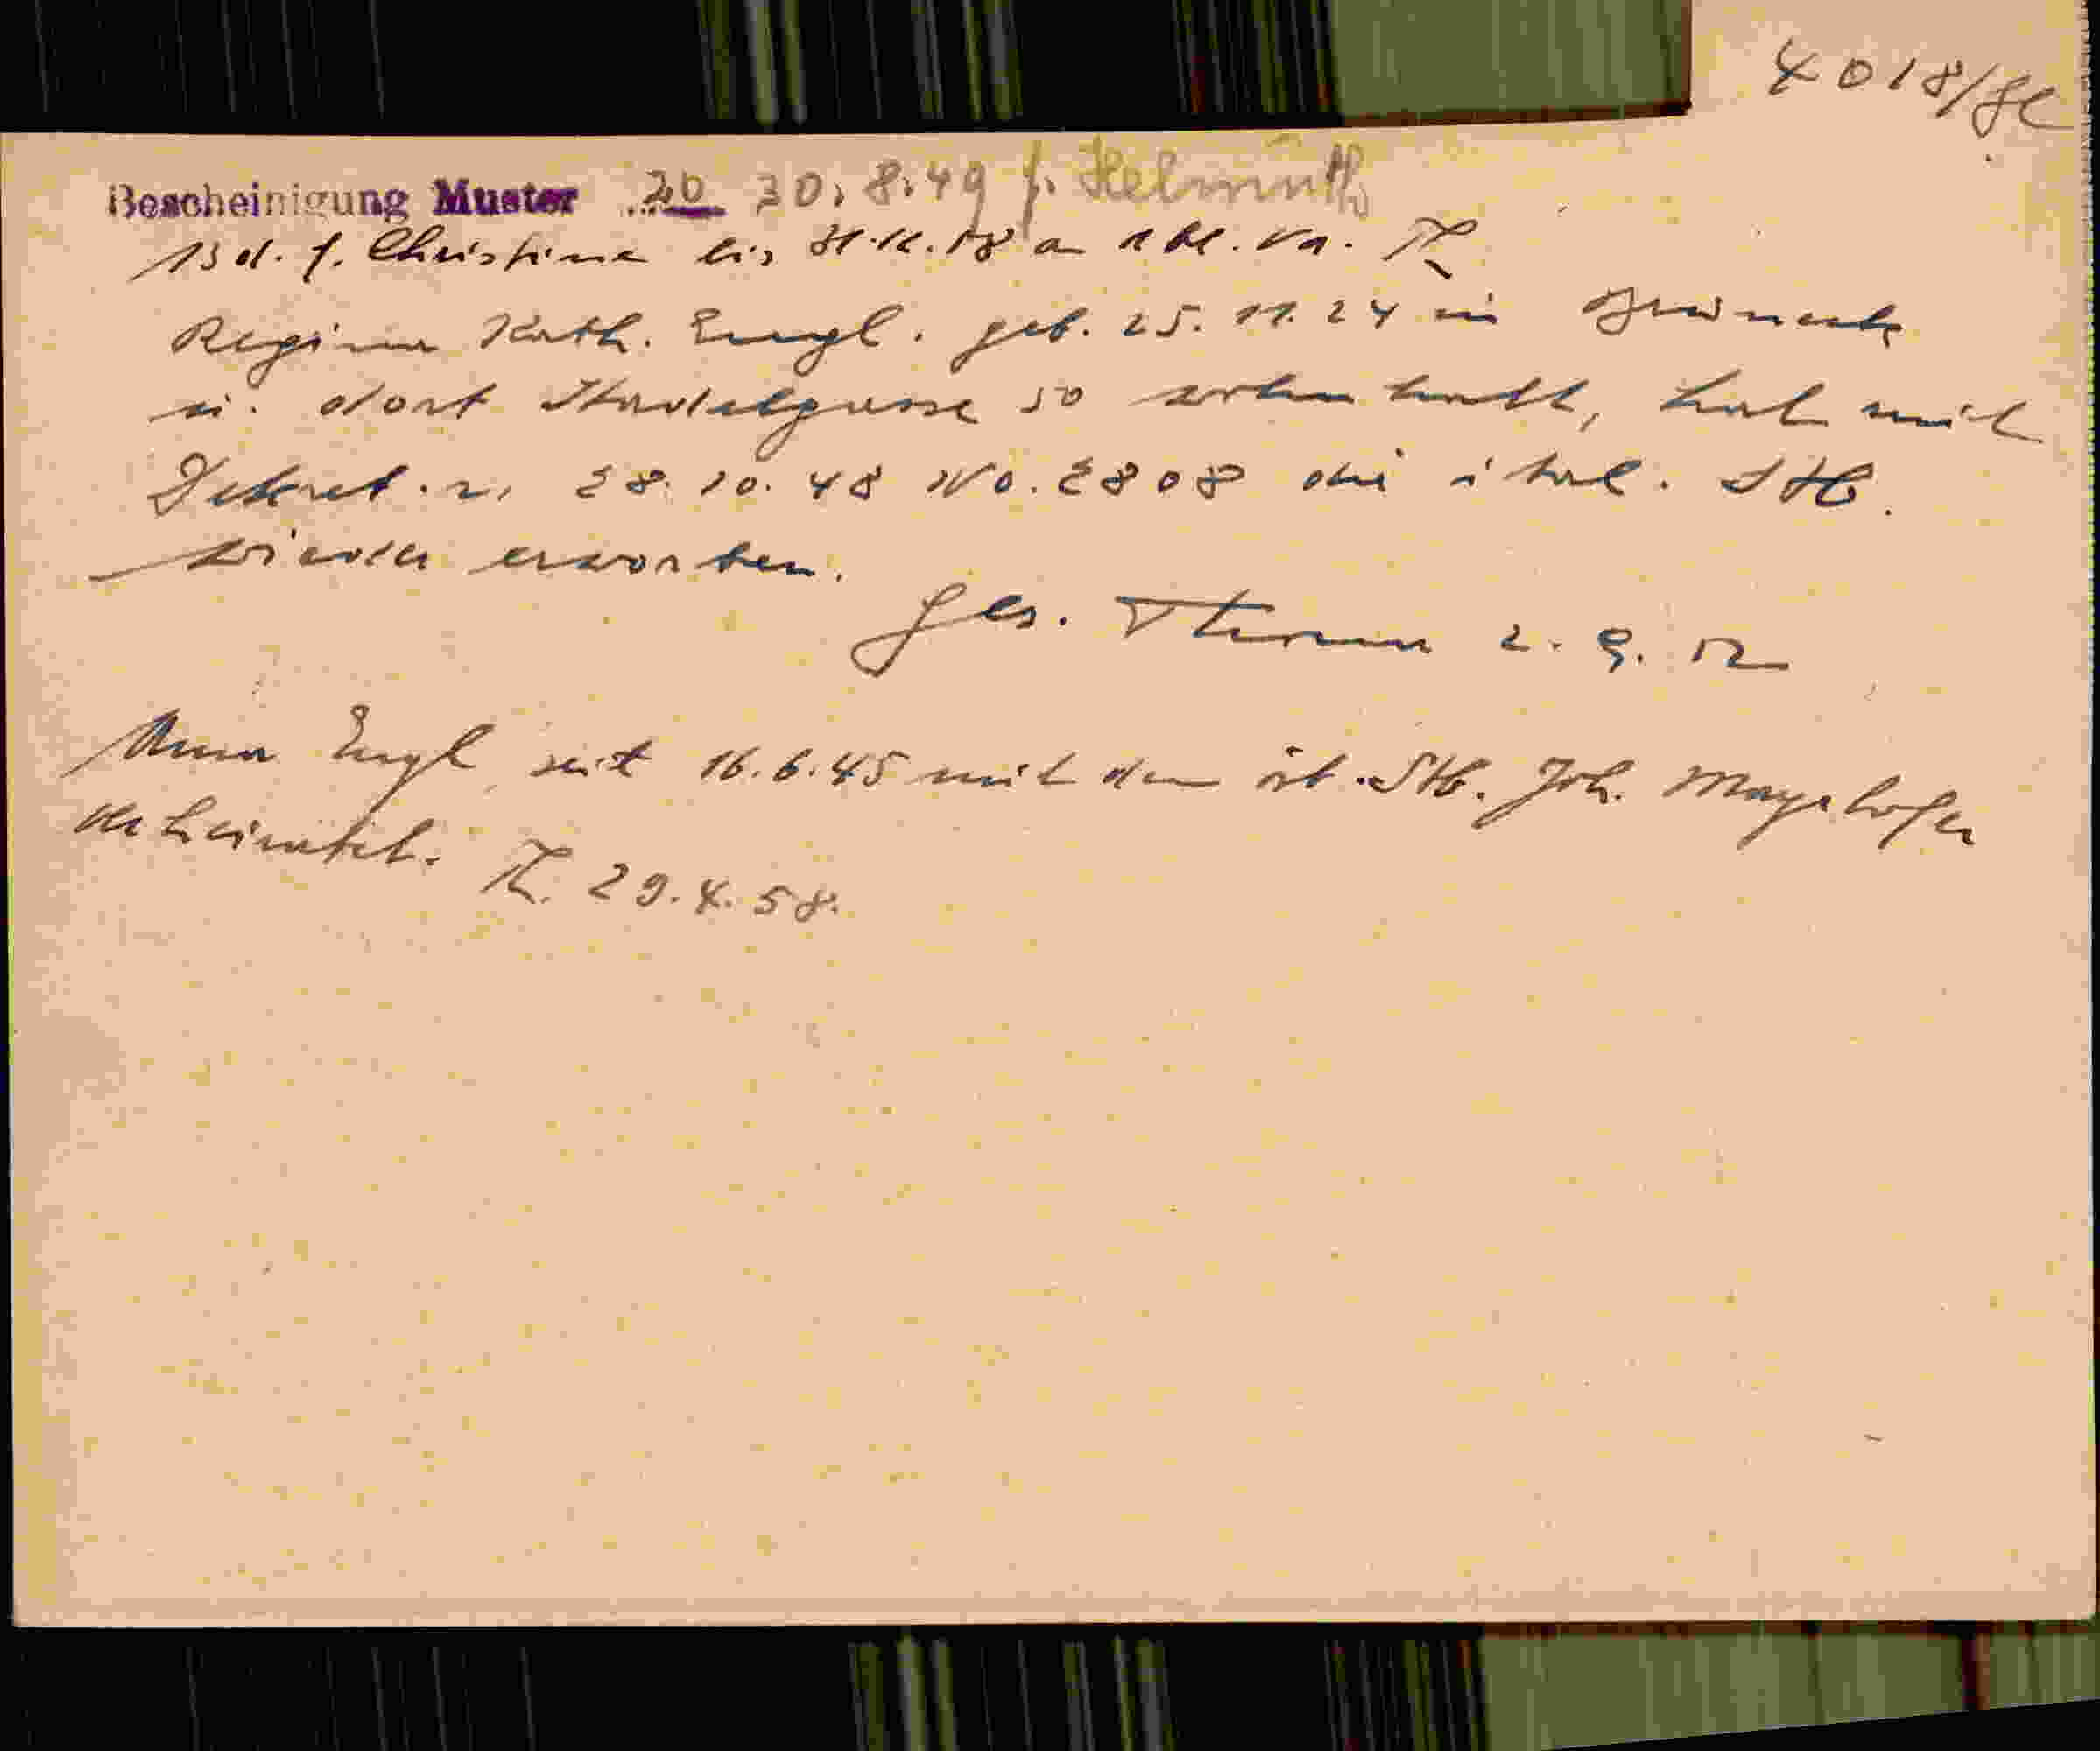 4018/
Bescheinigung Muster 20 30.8.49 f. Helmuth
f. Christine bis a
Regina Kath. Engl. geb. 25.11.24 in Bruneck
u. dort Stadelgasse 50 wohnhaft, hat mit
Dekret v. 28.10.48 No. 2808 die ital. Stb.
wieder erworben.
ges. 2.9.52
Anna Engl, seit 16.6.45 mit dem öst. Stb. Joh. Mayrhofer
verheiratet. 29.4.58.